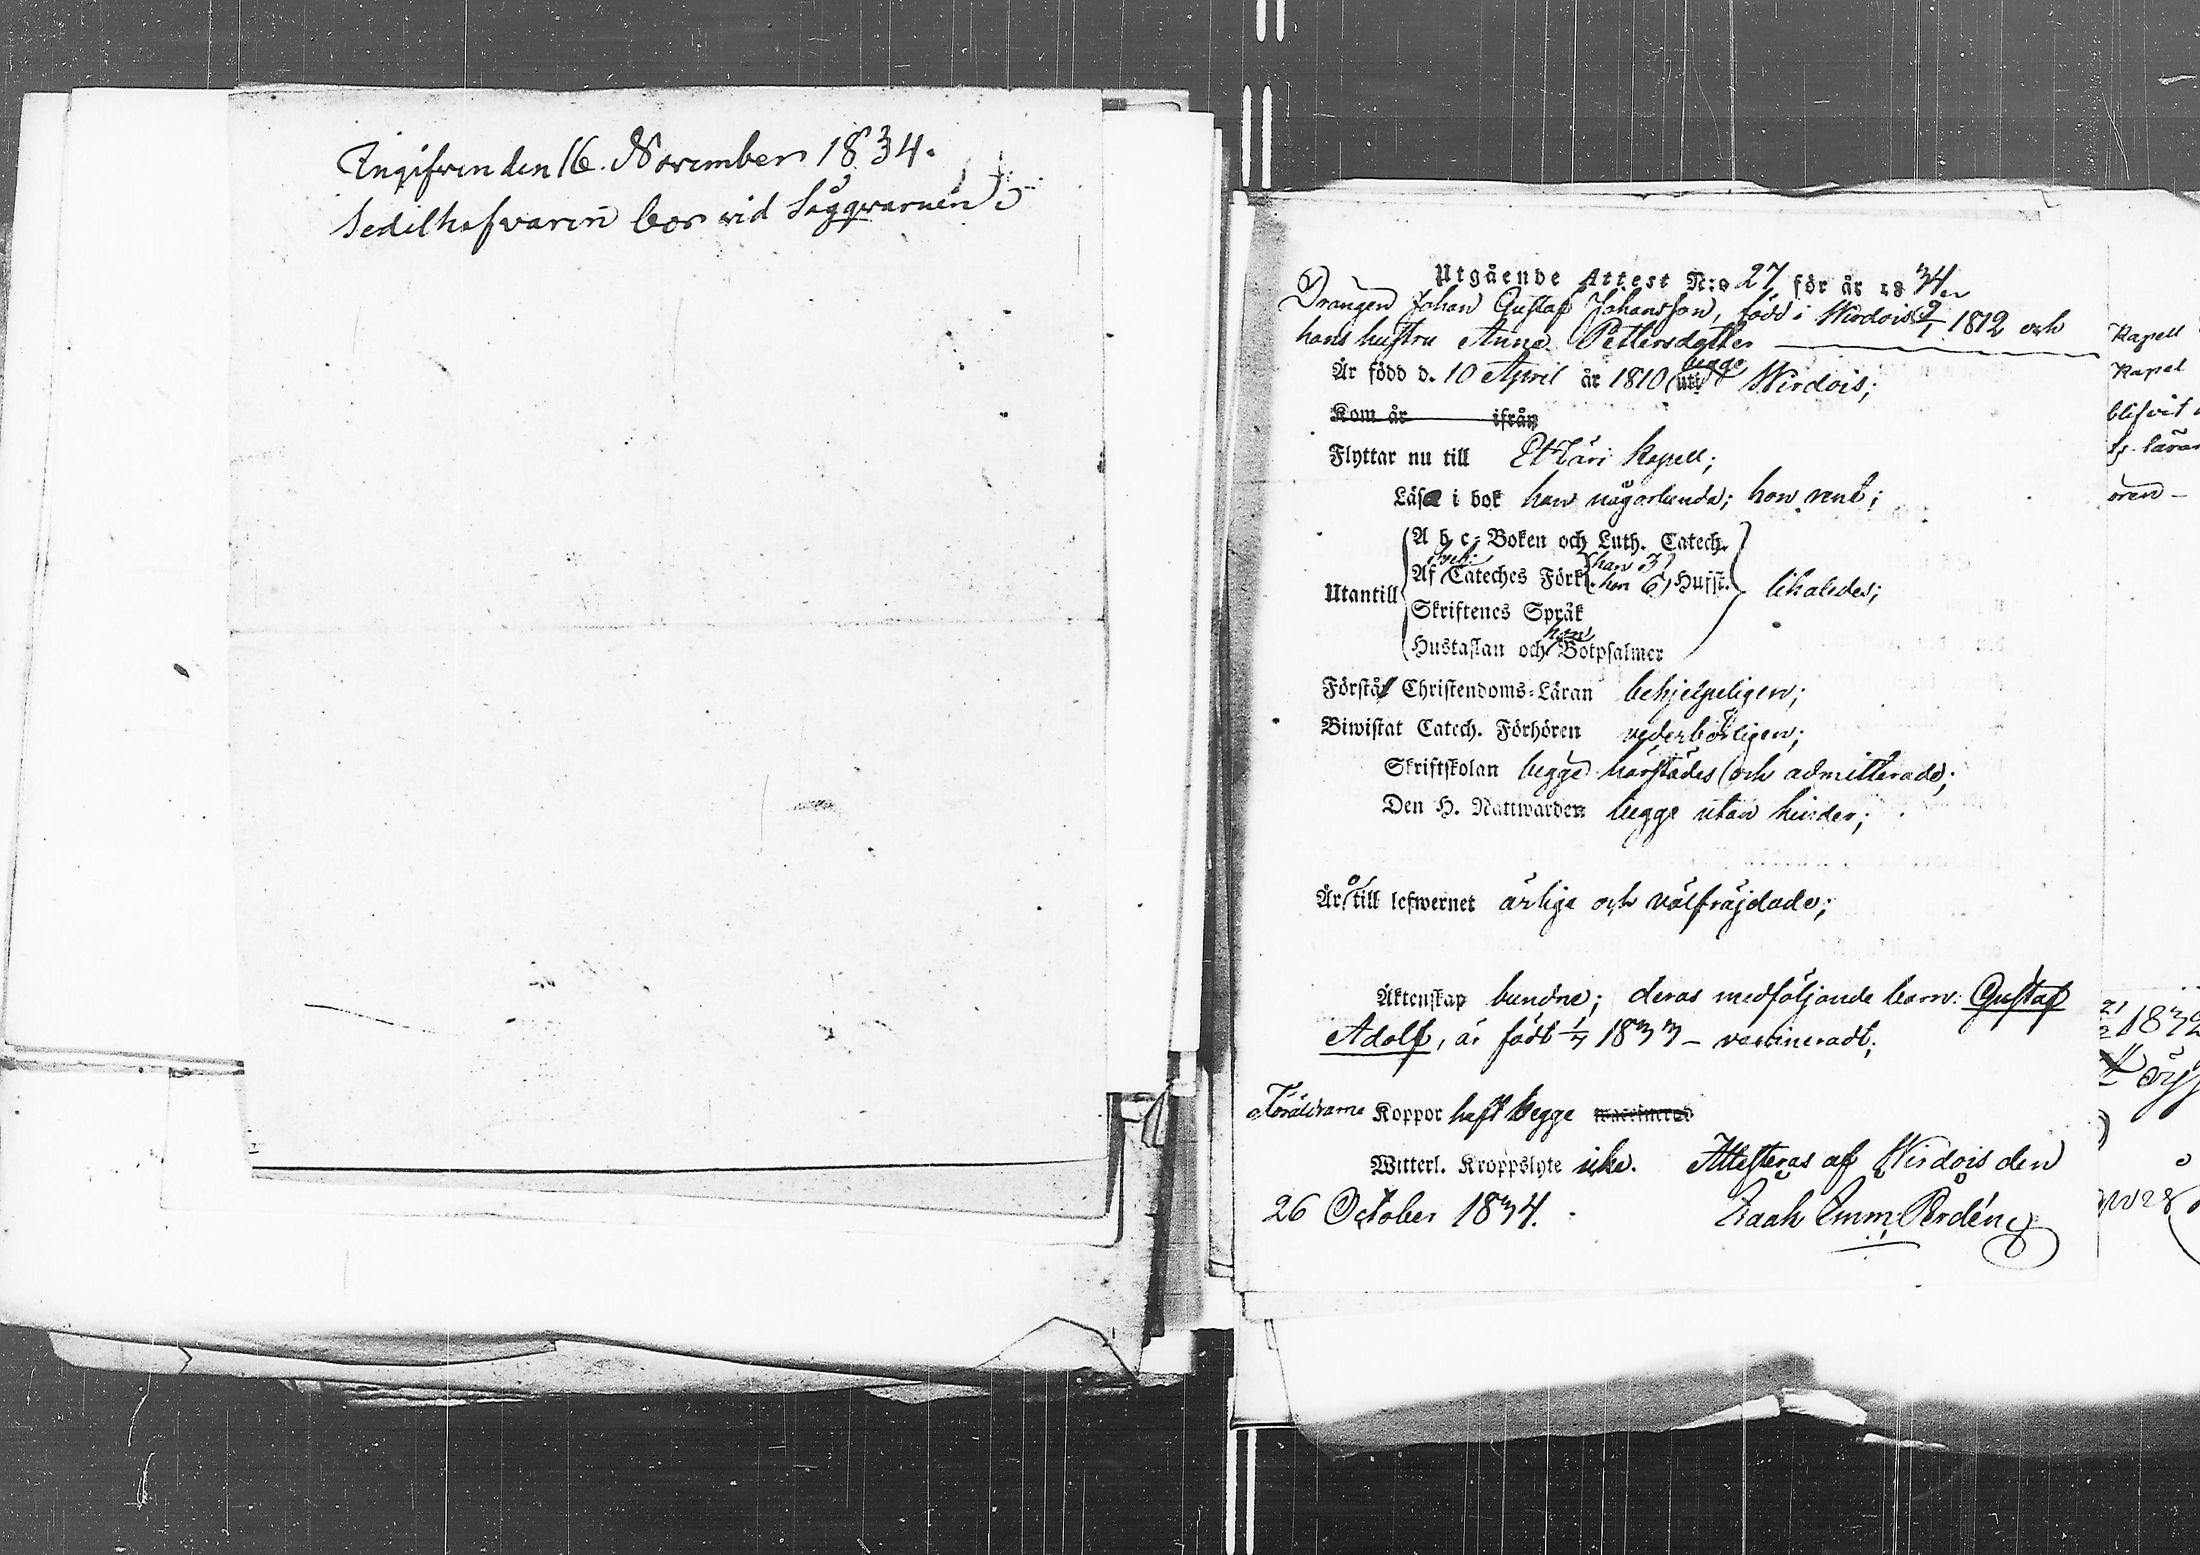 Ingifven den 16. November 1834.
Sedelhafvaren bor vid Sågqvarnen
Utgående Attest N:o 27 för år 1834.
Drängen Johan Gustaf Johansson, född i Wirdois 9/1 1812 och
hans hustru Anna Pettersdotter
Är född d. 10 April år 1810 uti begge Wirdois;
Kom år ifrån
Flyttar nu till Etzäri Kapell;
Läsa i bok han någorlunda; hon rent;
A b c-Boken och Luth. Catech.
Af Cateches Förkl. han 3 hon 6 Hufst.
Utantill likaledes;
Skriftenes Språk
Hustaflan och Botpsalmer
Förstå Christendoms-Läran behjelpeligen;
Biwistat Catech. Förhören vederbörligen;
Skriftskolan begge härstädes och admitterade;
Den H. Nattwarden begge utan hinder;
Äro till lefwernet ärlige och välfräjdade;
Äktenskap bundne; deras medföljande barn: Gustaf
Adolf, är född 1/7 1833 – vaccineradt;
Föräldrarne Koppor haft begge vaccinerad
Witterl. Kroppslyte icke. Attesteras af Wirdois den
26 October 1834.
Isaak Emm. Rordén
Kapell
Kapel
blifvit
oren –
21
2 1832